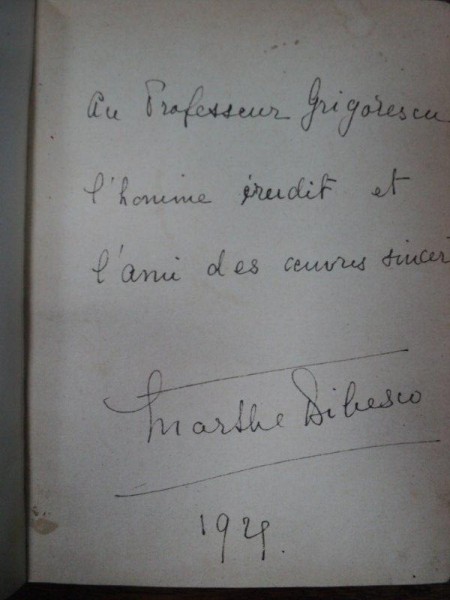 Au Professeur Grigorescu
l'homme érudit et
l'ami des œuvres sincer
Marthe Bibesco
1929.